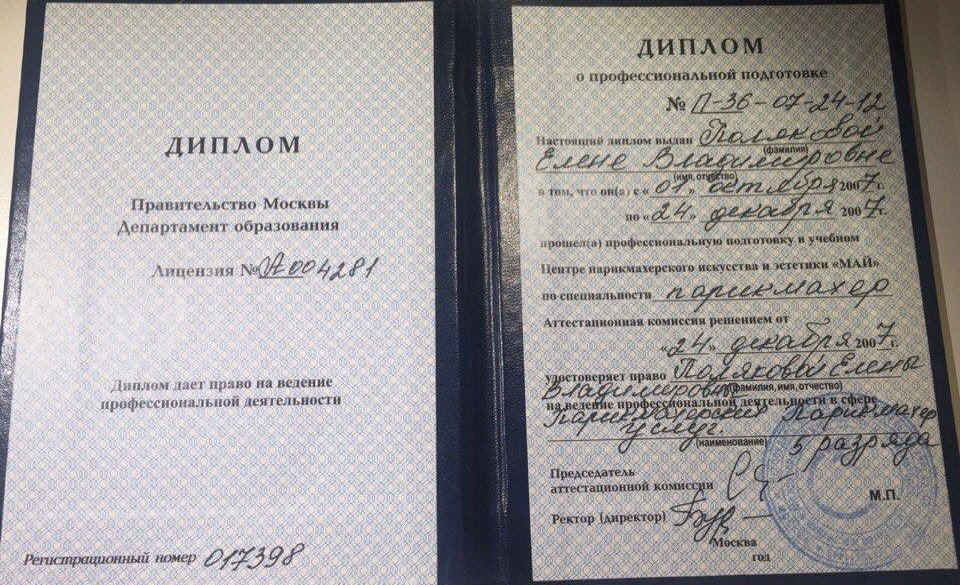 ДИПЛОМ
Правительство Москвы
Департамент образования
Лицензия № А 004281
Диплом дает право на ведение
профессиональной деятельности
Регистрационный номер 017398
ДИПЛОМ
о профессиональной подготовке
№ П-36-07-24-12
Настоящий диплом выдан Поляковой
(фамилия)
Елене Владимировне
(имя, отчество)
в том, что он(а) с «01» октября 2007 г.
по «24» декабря 2007 г.
прошел(а) профессиональную подготовку в учебном
Центре парикмахерского искусства и эстетики «МАЙ»
по специальности парикмахер
Аттестационная комиссия решением от
«24» декабря 2007 г.
удостоверяет право Поляковой Елены
Владимировны (фамилия, имя, отчество)
на ведение профессиональной деятельности в сфере
Парикмахерских Парикмахер
услуг.
(наименование) 5 разряда
Председатель
аттестационной комиссии
М.П.
Ректор (директор)
Москва
год